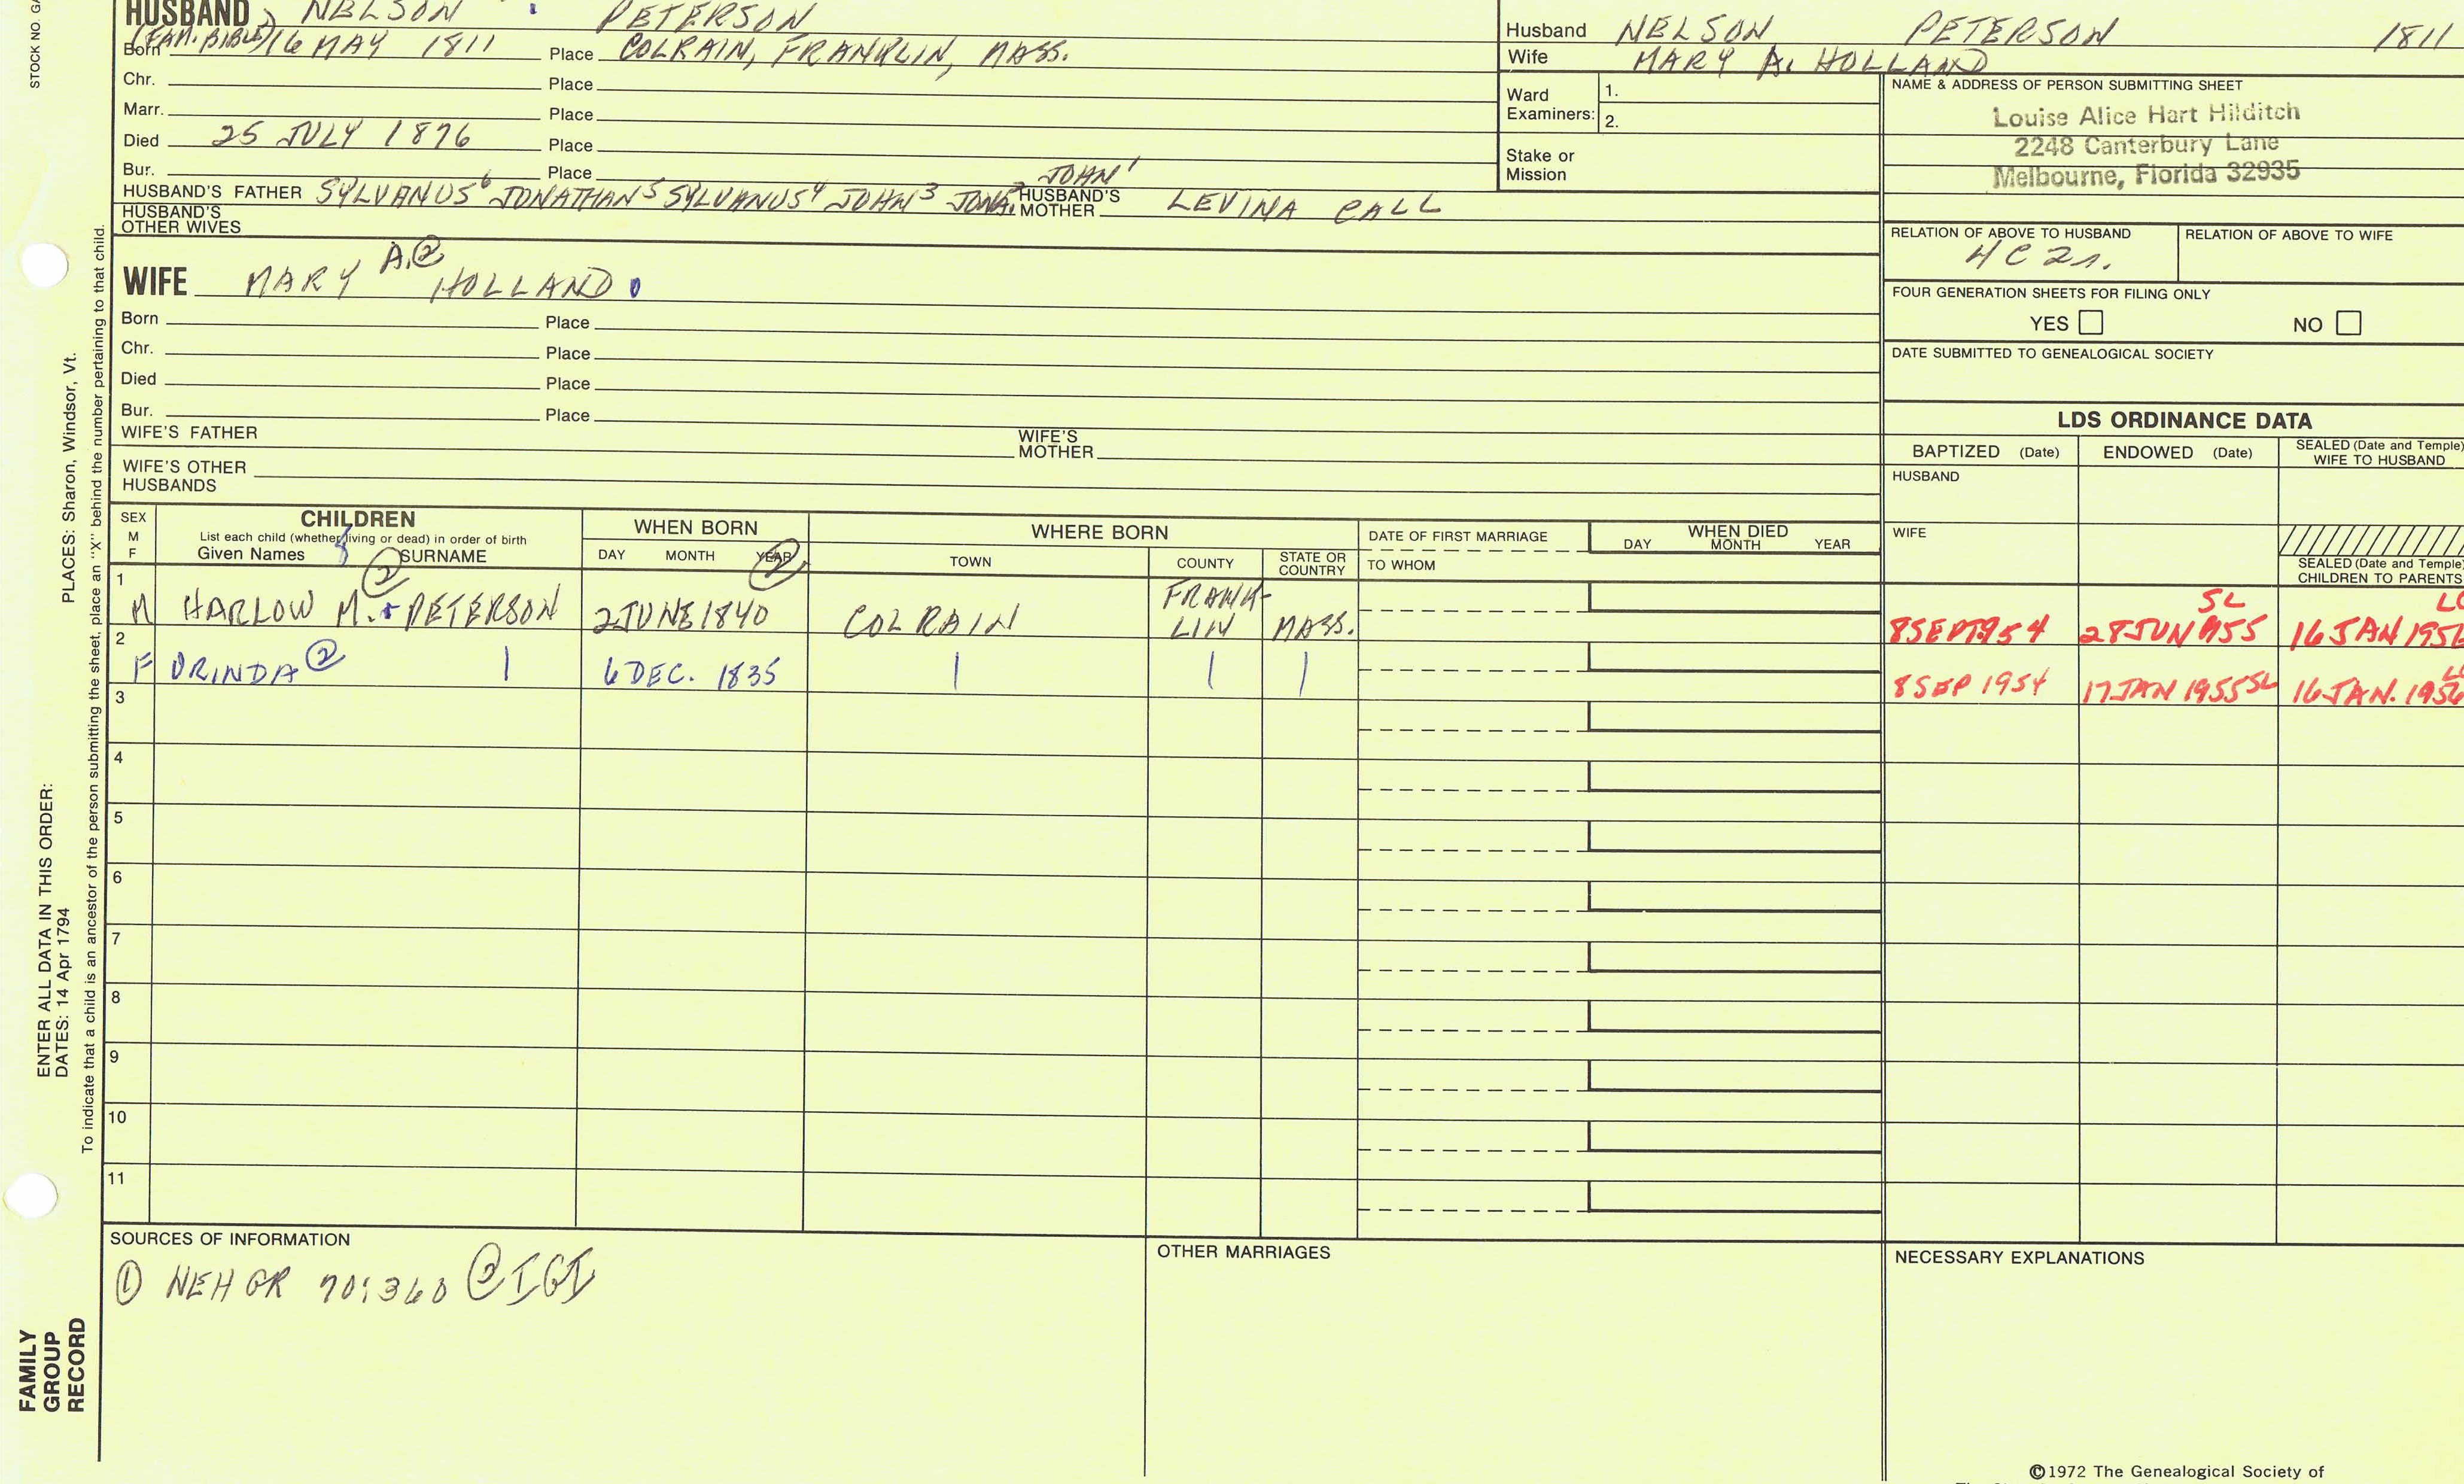 STOCK NO. GA
PLACES: Sharon, Windsor, Vt.
ENTER ALL DATA IN THIS ORDER:
DATES: 14 Apr 1794
To indicate that a child is an ancestor of the person submitting the sheet, place an "X" behind the number pertaining to that child.
FAMILY GROUP RECORD
HUSBAND NELSON PETERSON
(FAM. BIBLE)
Born 16 MAY 1811 Place COLRAIN, FRANKLIN, MASS.
Chr. Place
Marr. Place
Died 25 JULY 1876 Place
Bur. Place
HUSBAND'S FATHER SYLVANUS6 JONATHAN5 SYLVANUS4 JOHN3 JONA.2 JOHN1 HUSBAND'S MOTHER LEVINA CALL
HUSBAND'S OTHER WIVES
WIFE MARY A.② HOLLAND
Born Place
Chr. Place
Died Place
Bur. Place
WIFE'S FATHER WIFE'S MOTHER
WIFE'S OTHER HUSBANDS
Husband NELSON PETERSON 1811
Wife MARY A. HOLLAND
Ward Examiners: 1.
2.
Stake or Mission
NAME & ADDRESS OF PERSON SUBMITTING SHEET
Louise Alice Hart Hilditch
2248 Canterbury Lane
Melbourne, Florida 32935
RELATION OF ABOVE TO HUSBAND RELATION OF ABOVE TO WIFE
4C2r.
FOUR GENERATION SHEETS FOR FILING ONLY
YES NO
DATE SUBMITTED TO GENEALOGICAL SOCIETY
LDS ORDINANCE DATA
BAPTIZED (Date) ENDOWED (Date) SEALED (Date and Temple) WIFE TO HUSBAND
HUSBAND
WIFE
SEALED (Date and Temple) CHILDREN TO PARENTS
SEX M F
CHILDREN
List each child (whether living or dead) in order of birth
Given Names SURNAME
WHEN BORN
DAY MONTH YEAR ②
WHERE BORN
TOWN COUNTY STATE OR COUNTRY
DATE OF FIRST MARRIAGE
TO WHOM
WHEN DIED
DAY MONTH YEAR
1 M HARLOW M. ② PETERSON 2 JUNE 1840 COLRAIN FRANK-LIN MASS. 8 SEPT 1954 28 JUN 1955 SL 16 JAN 1956
2 F ORINDA ② | 6 DEC. 1835 | | | 8 SEP 1954 17 JAN 1955 SL 16 JAN. 1956
3
4
5
6
7
8
9
10
11
SOURCES OF INFORMATION
① NEHGR 70:360 ② IGI
OTHER MARRIAGES
NECESSARY EXPLANATIONS
©1972 The Genealogical Society of